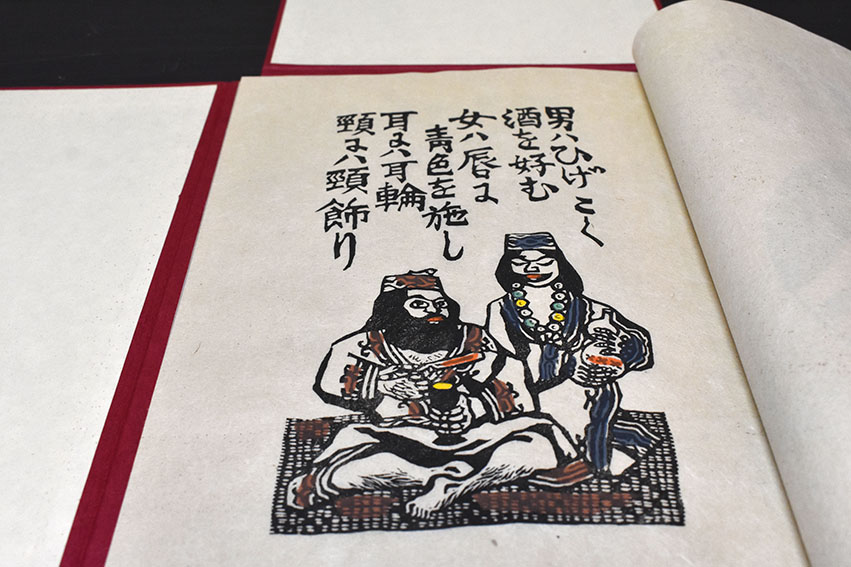 男ハひげこく
酒を好む
女ハ唇に
青色を施し
耳にハ耳輪
頸にハ頸飾り